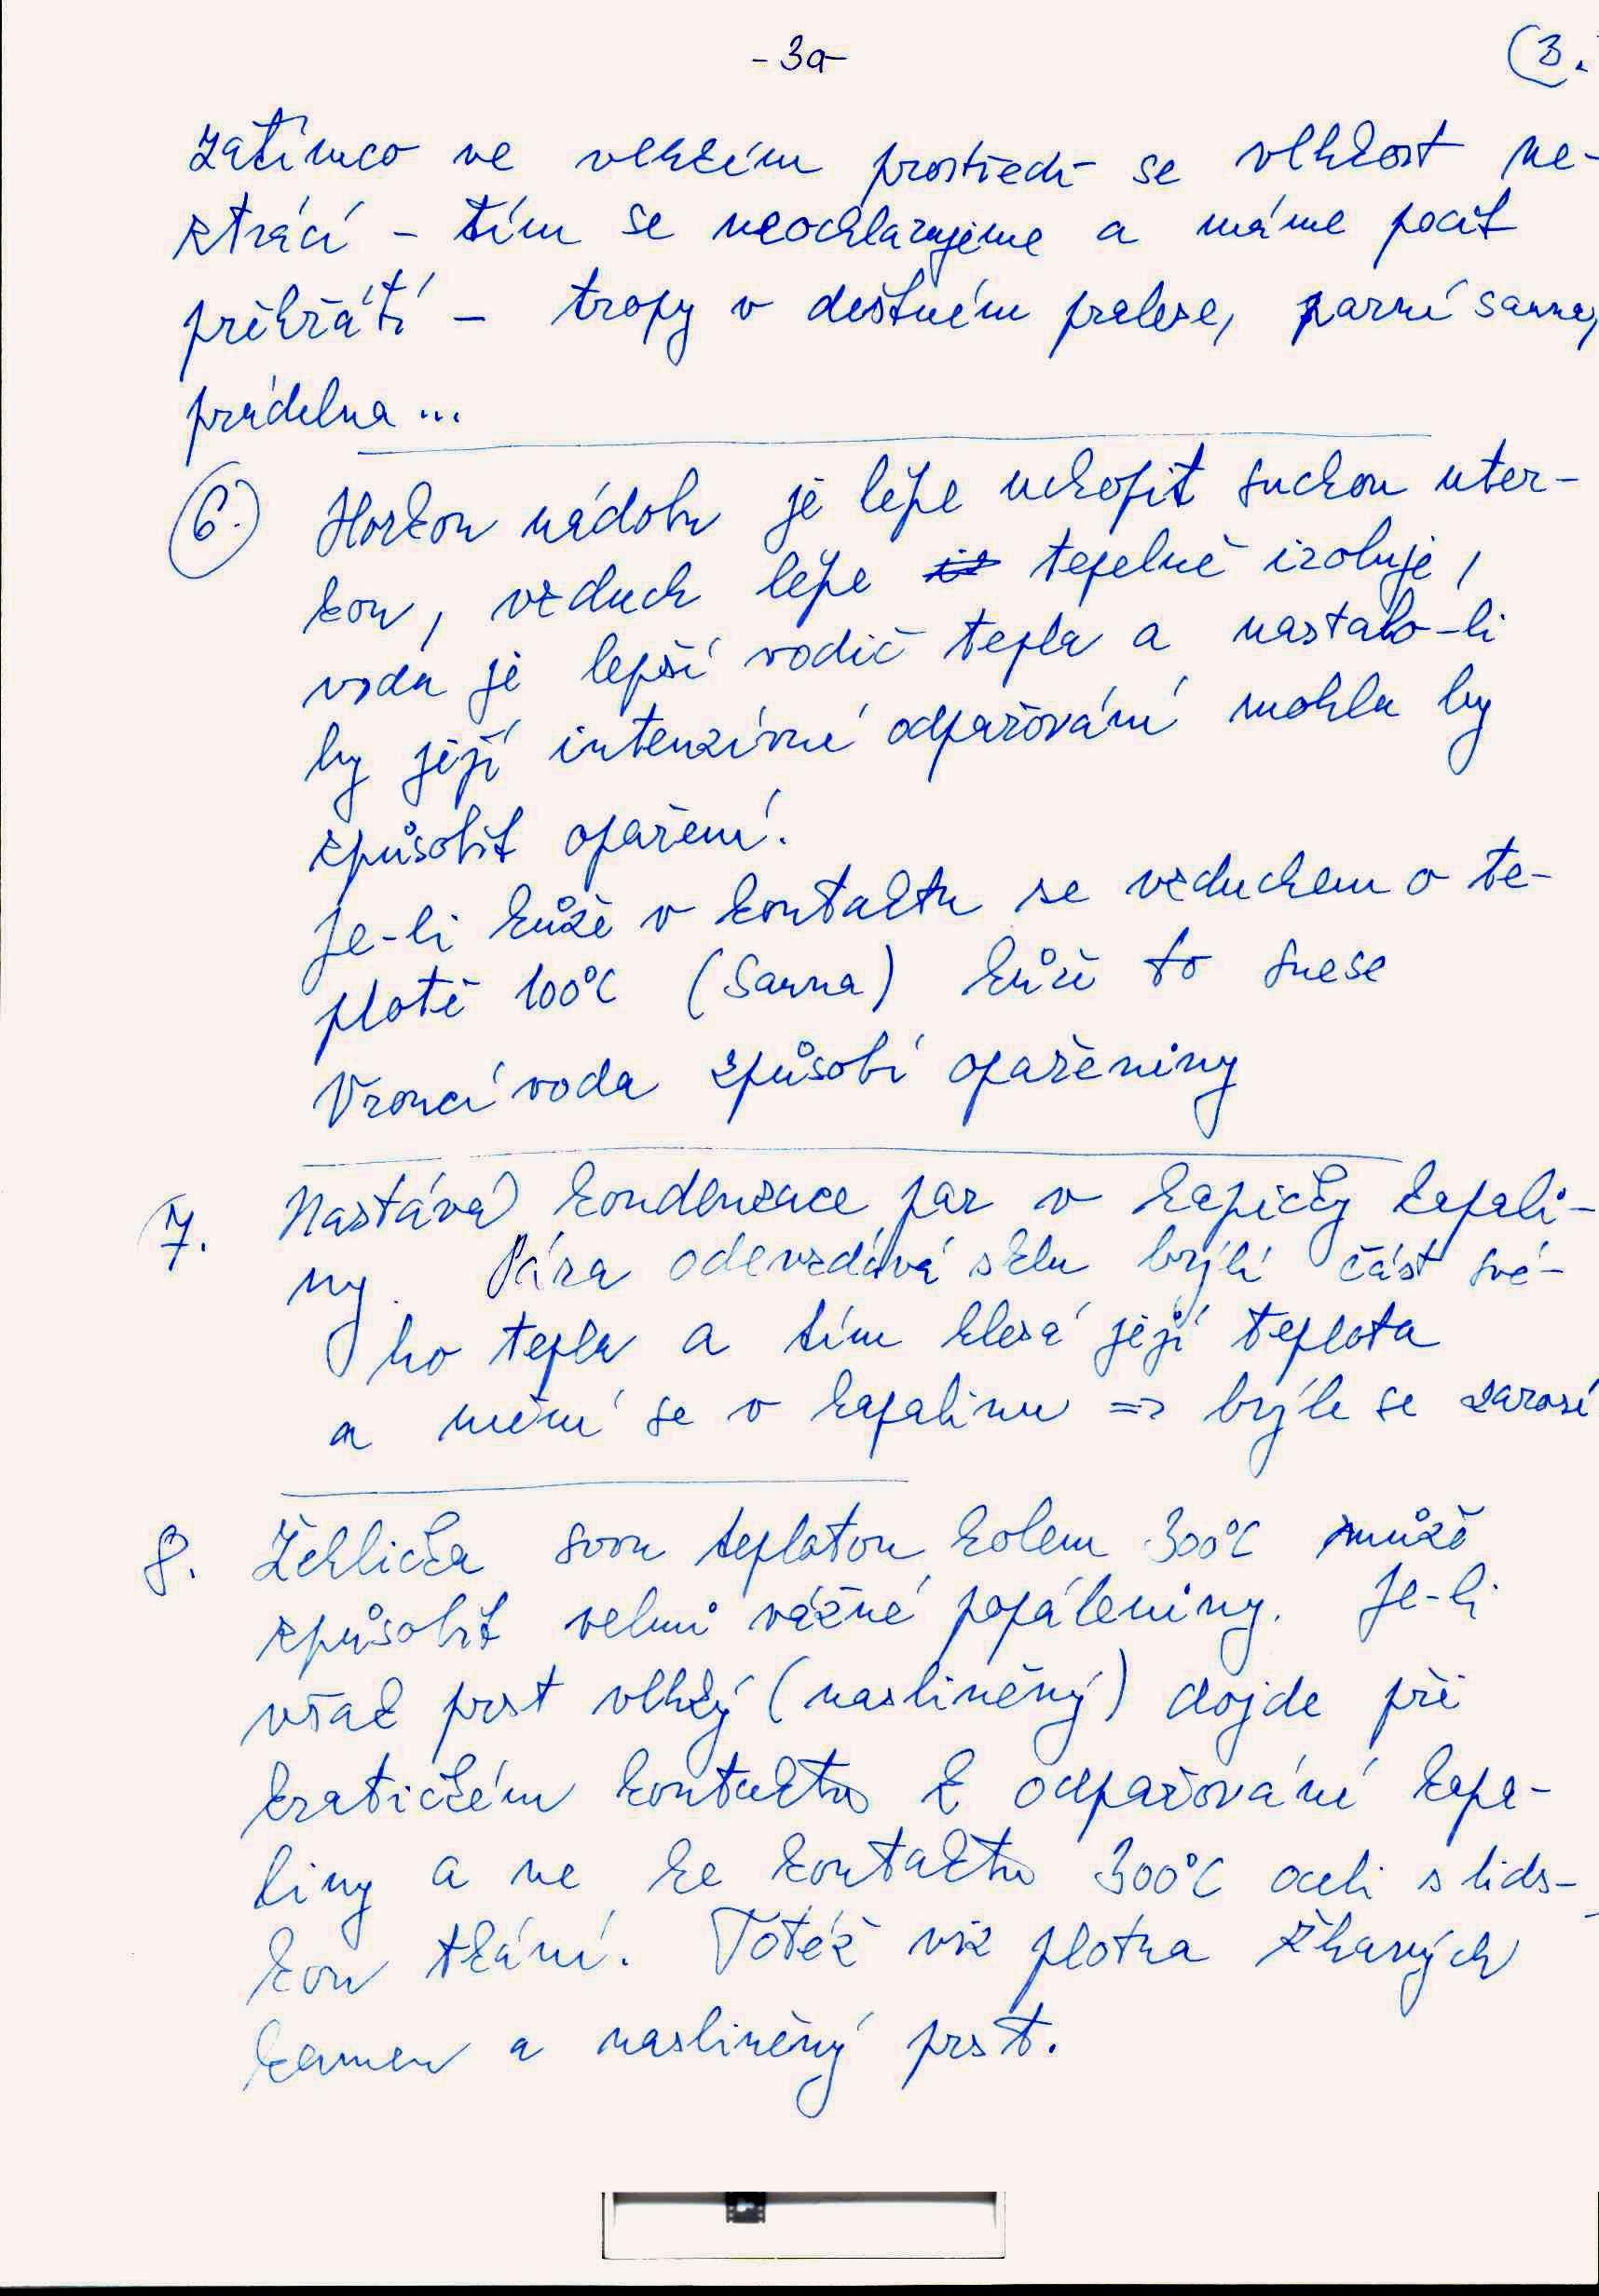 - 3a -
(3.
zatímco ve vlhkém prostředí se vlhkost ne-
ztrácí – tím se neochlazujeme a máme pocit
přehřátí – tropy v deštném pralese, parní sauna,
prádelna ...
6. Horkou nádobu je lépe uchopit suchou uter-
kou, vzduch lépe tepelně izoluje,
voda je lepší vodič tepla a nastalo-li
by její intenzívní odpařování mohla by
způsobit opaření.
Je-li kůže v kontaktu se vzduchem o te-
plotě 100°C (Sauna) kůže to snese
Vroucí voda způsobí opařeniny
7. Nastává kondenzace par v kapičky kapali-
ny. Pára odevzdává sklu brýlí část své-
ho tepla a tím klesá její teplota
a mění se v kapalinu => brýle se zarosí
8. Žehlička svou teplotou kolem 300°C může
způsobit velmi vážné popáleniny. Je-li
však prst vlhký (naslíněný) dojde při
kratičkém kontaktu k odpařování kapa-
liny a ne ke kontaktu 300°C oceli s lids-
kou tkání. Totéž viz plotna žhavých
kamen a naslíněný prst.